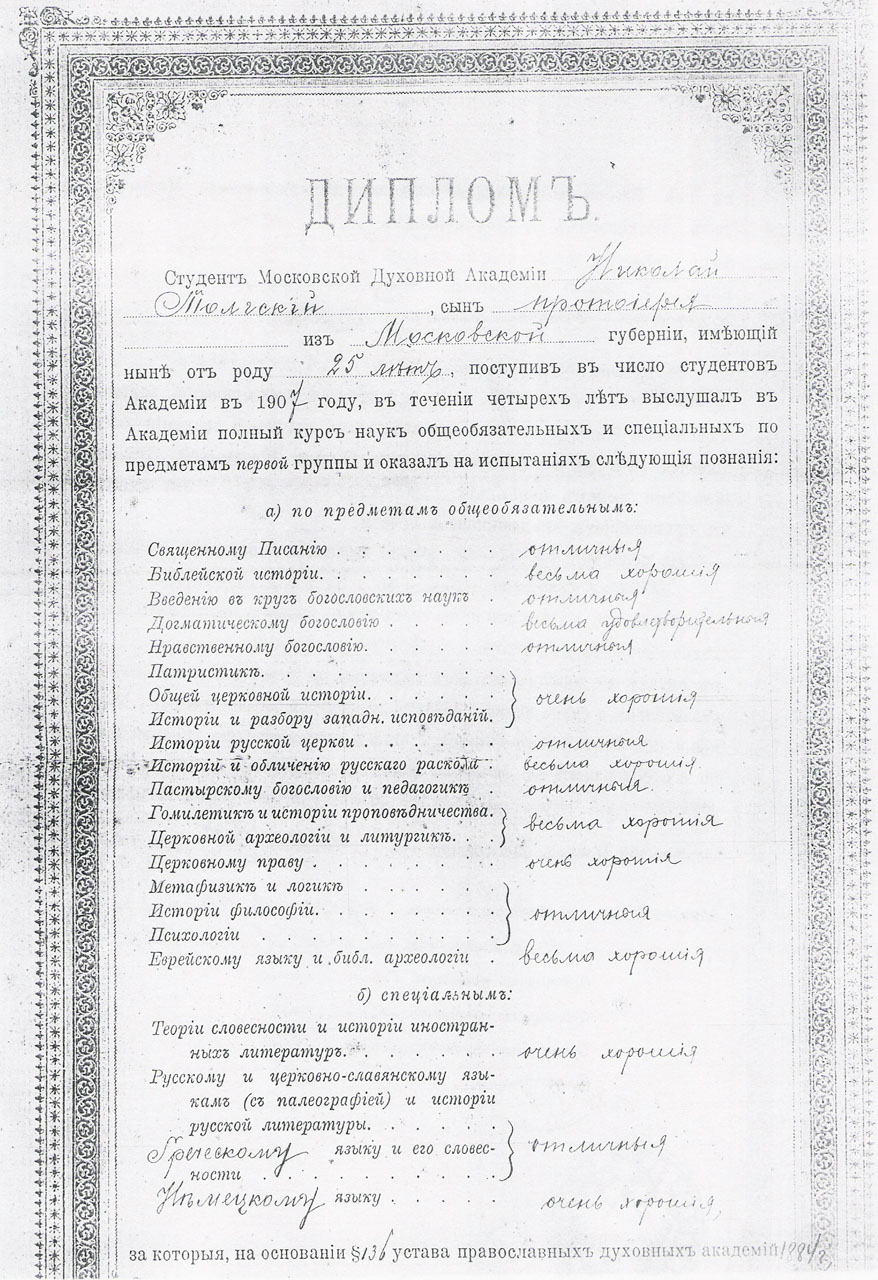 ДИПЛОМЪ.
Студентъ Московской Духовной Академіи Николай
Толгскій, сынъ протоіерея
изъ Московской губерніи, имѣющій
нынѣ отъ роду 25 лѣтъ, поступивъ въ число студентовъ
Академіи въ 1907 году, въ теченіи четырехъ лѣтъ выслушалъ въ
Академіи полный курсъ наукъ общеобязательныхъ и спеціальныхъ по
предметамъ первой группы и оказалъ на испытаніяхъ слѣдующія познанія:
а) по предметамъ общеобязательнымъ:
Священному Писанію . . . . . . . отличныя
Библейской исторіи. . . . . . . . весьма хорошія
Введенію въ кругъ богословскихъ наукъ . отличныя
Догматическому богословію . . . . . весьма удовлетворительныя
Нравственному богословію. . . . . . отличныя
Патристикѣ. . . . . . . . . .
Общей церковной исторіи. . . . . . очень хорошія
Исторіи и разбору западн. исповѣданій.
Исторіи русской церкви . . . . . . отличныя
Исторіи и обличенію русскаго раскола . весьма хорошія
Пастырскому богословію и педагогикѣ . отличныя.
Гомилетикѣ и исторіи проповѣдничества.
Церковной археологіи и литургикѣ. . . весьма хорошія
Церковному праву . . . . . . . . очень хорошія
Метафизикѣ и логикѣ . . . . . .
Исторіи философіи. . . . . . . . отличныя
Психологіи . . . . . . . . . .
Еврейскому языку и библ. археологіи . весьма хорошія
б) спеціальнымъ:
Теоріи словесности и исторіи иностран-
ныхъ литературъ. . . . . . . очень хорошія
Русскому и церковно-славянскому язы-
камъ (съ палеографіей) и исторіи
русской литературы. . . . . .
Греческому языку и его словес- отличныя
ности . . . . . . . . . .
Нѣмецкому языку . . . . . очень хорошія,
за которыя, на основаніи § 136 устава православныхъ духовныхъ академій 1884 г.